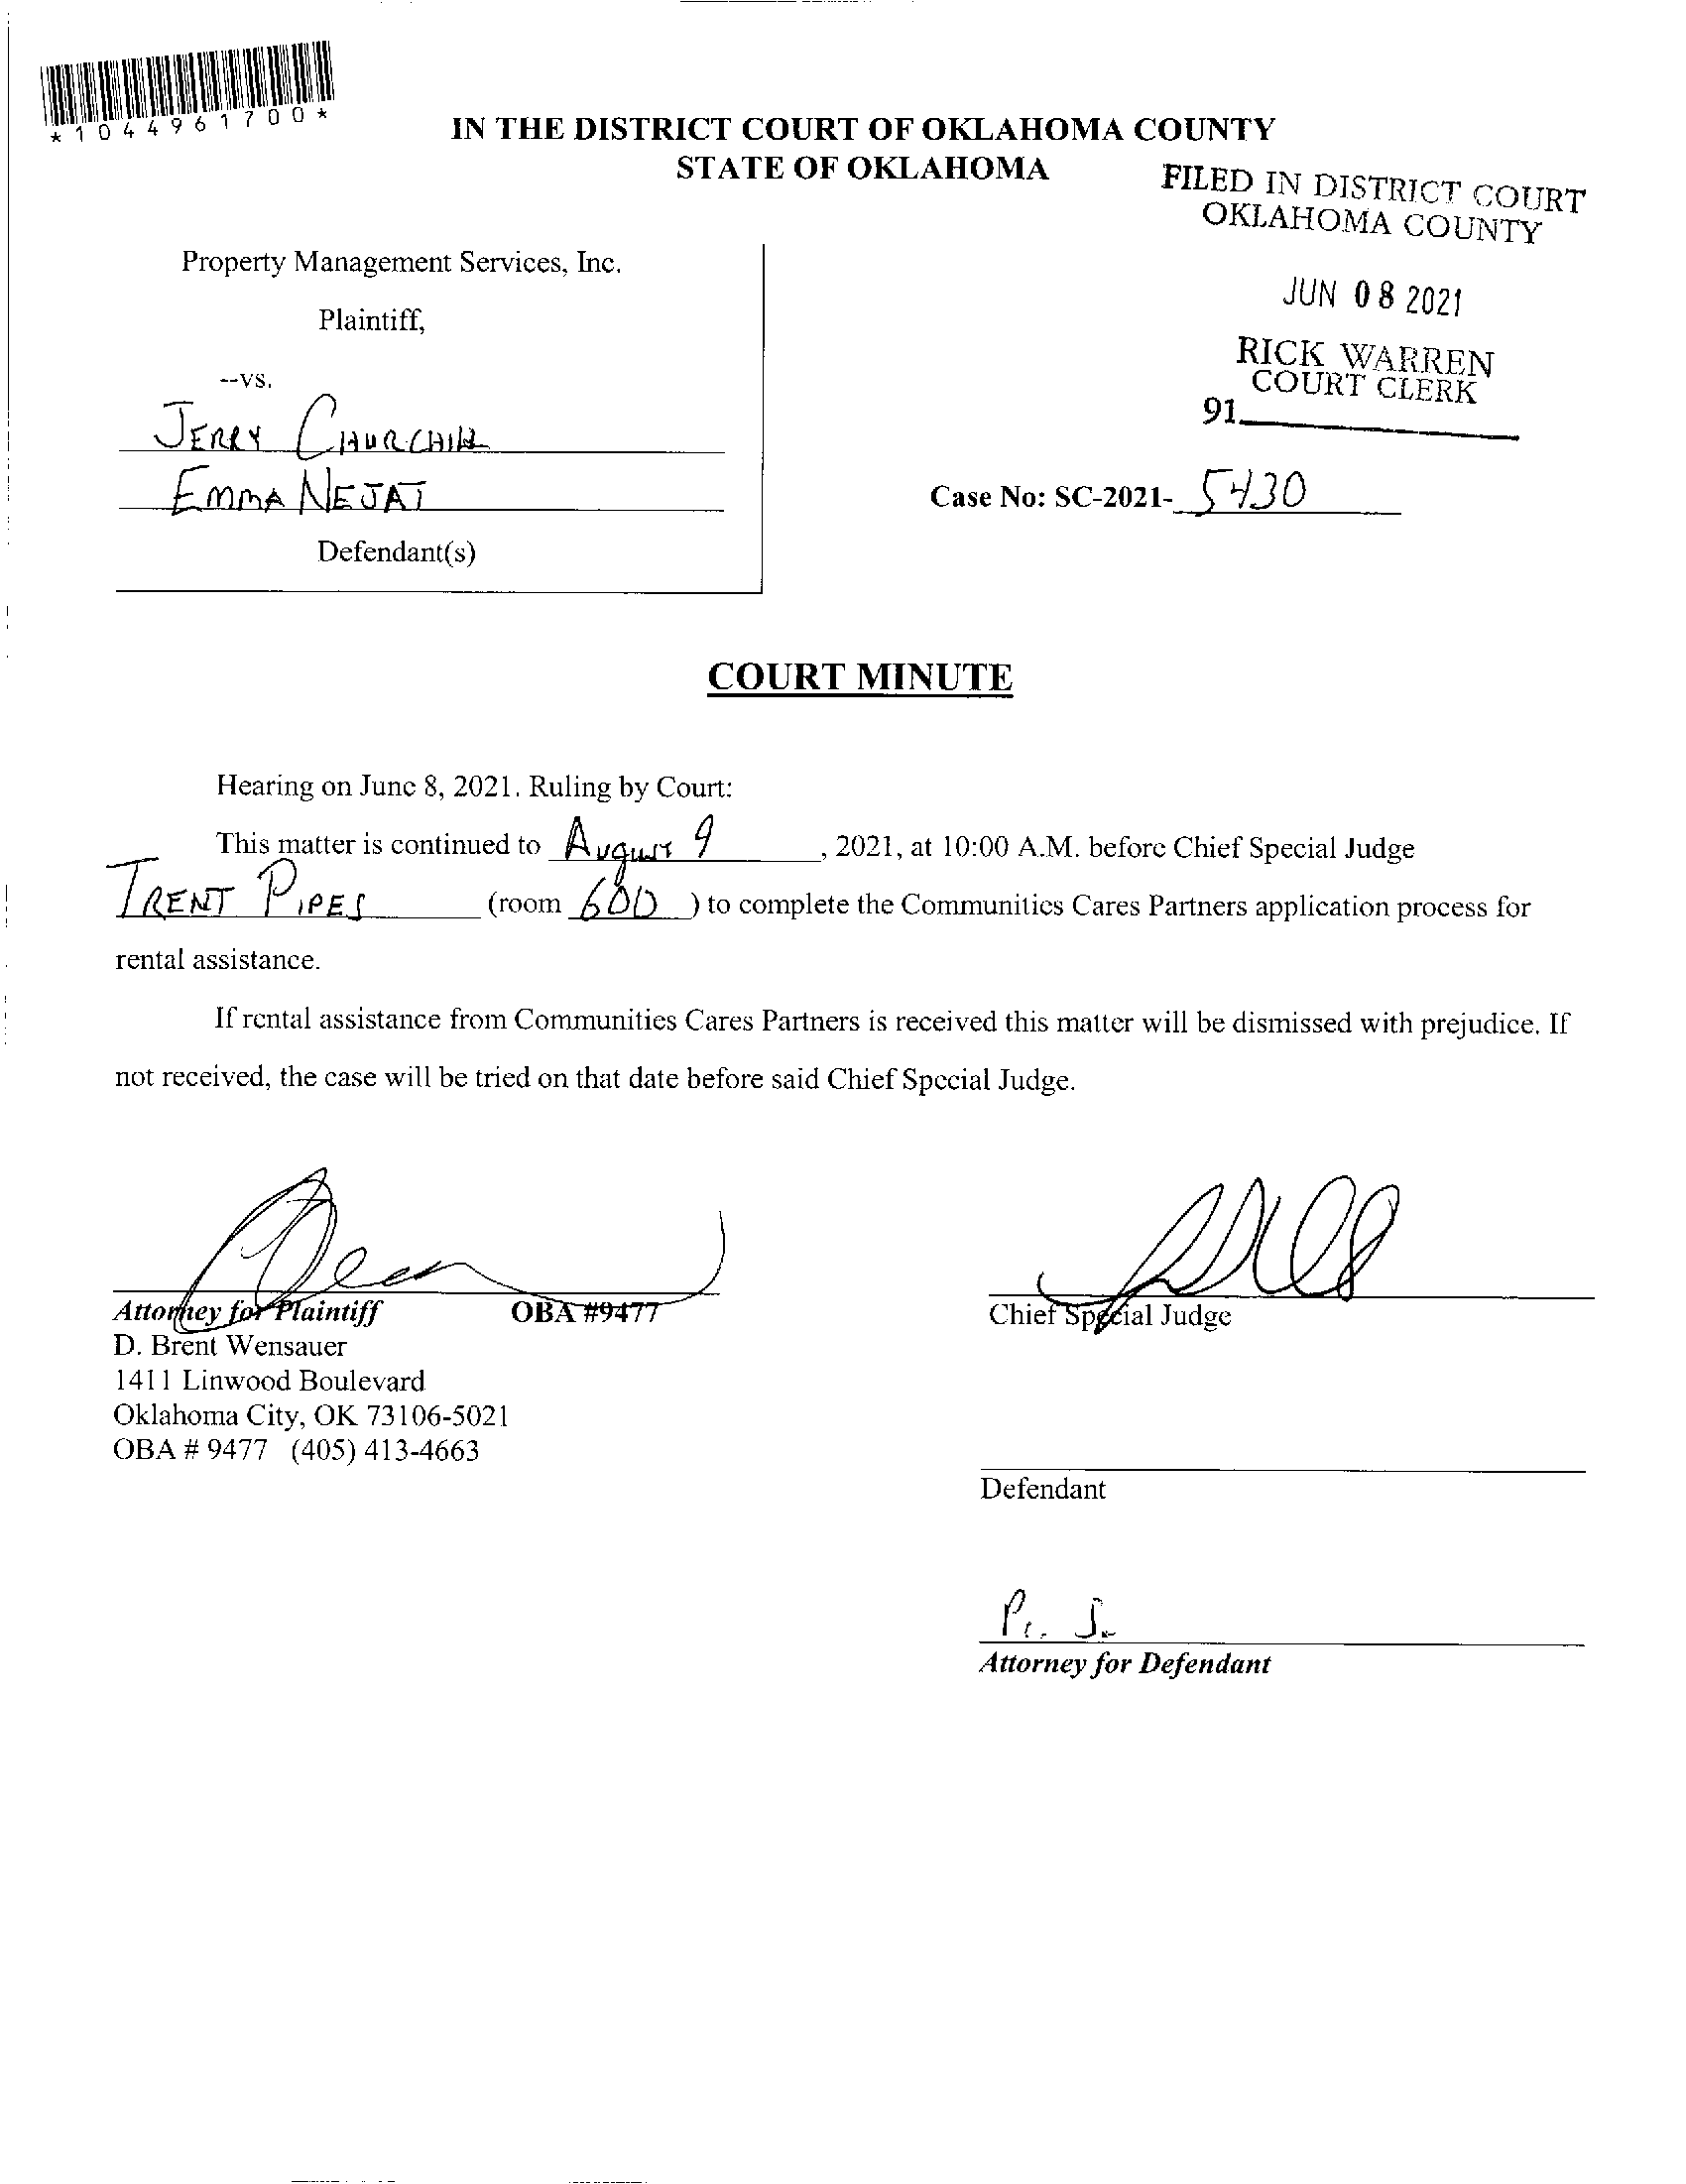 *1044961700*
IN THE DISTRICT COURT OF OKLAHOMA COUNTY
STATE OF OKLAHOMA
FILED IN DISTRICT COURT
OKLAHOMA COUNTY
JUN 08 2021
RICK WARREN
COURT CLERK
91
Property Management Services, Inc.
Plaintiff,
--vs.
JERRY CHURCHILL
EMMA NEJAT
Defendant(s)
Case No: SC-2021- 5430
COURT MINUTE
Hearing on June 8, 2021. Ruling by Court:
This matter is continued to August 9, 2021, at 10:00 A.M. before Chief Special Judge
TRENT PIPES (room 600) to complete the Communities Cares Partners application process for
rental assistance.
If rental assistance from Communities Cares Partners is received this matter will be dismissed with prejudice. If
not received, the case will be tried on that date before said Chief Special Judge.
Attorney for Plaintiff OBA #9477
D. Brent Wensauer
1411 Linwood Boulevard
Oklahoma City, OK 73106-5021
OBA # 9477 (405) 413-4663
Chief Special Judge
Defendant
Attorney for Defendant